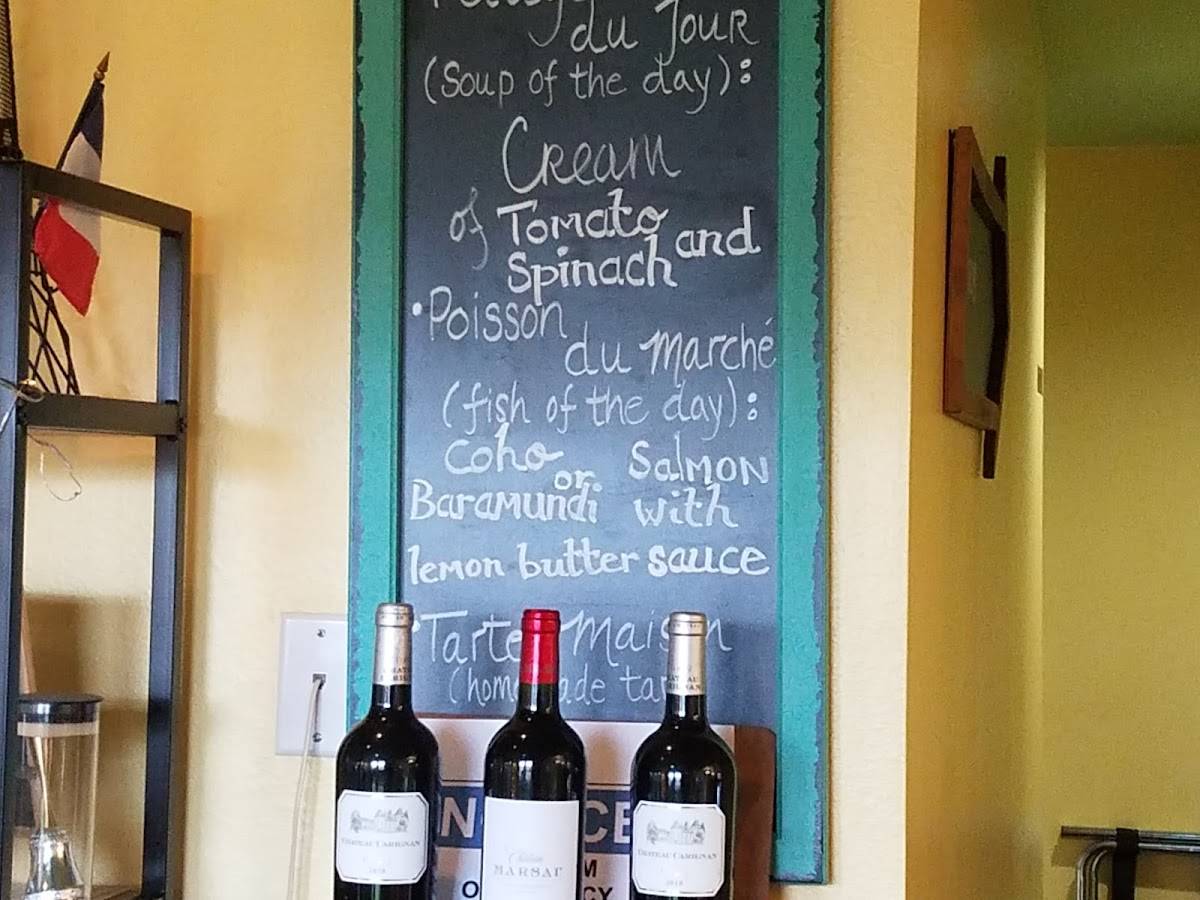 du Jour
(Soup of the day):
Cream
of Tomato and
Spinach
• Poisson
du Marché
(fish of the day):
Coho or Salmon
Baramundi with
lemon butter sauce
• Tarte Maison
CHATEAU CARIGNAN
Château
MARSAC
CHATEAU CARIGNAN